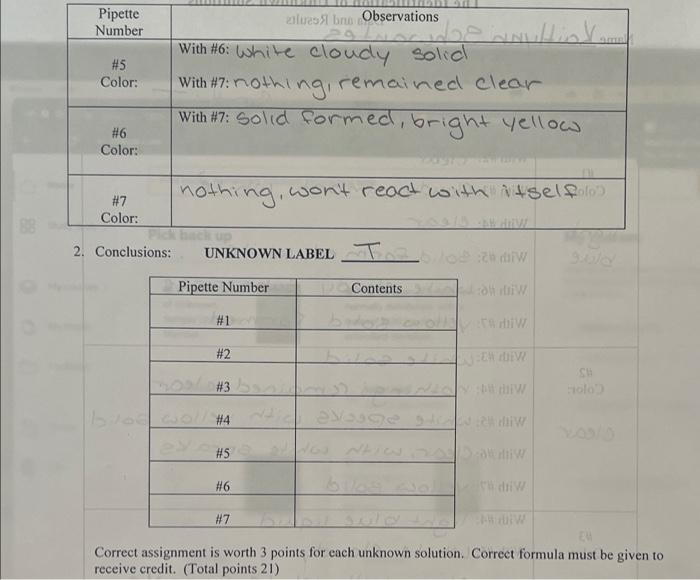 Pipette Number
Observations
#5
Color:
With #6: white cloudy solid
With #7: nothing, remained clear
#6
Color:
With #7: Solid formed, bright yellow
#7
Color:
nothing, won't react with itself
2. Conclusions: UNKNOWN LABEL T
Pipette Number Contents
#1
#2
#3
#4
#5
#6
#7
Correct assignment is worth 3 points for each unknown solution. Correct formula must be given to
receive credit. (Total points 21)